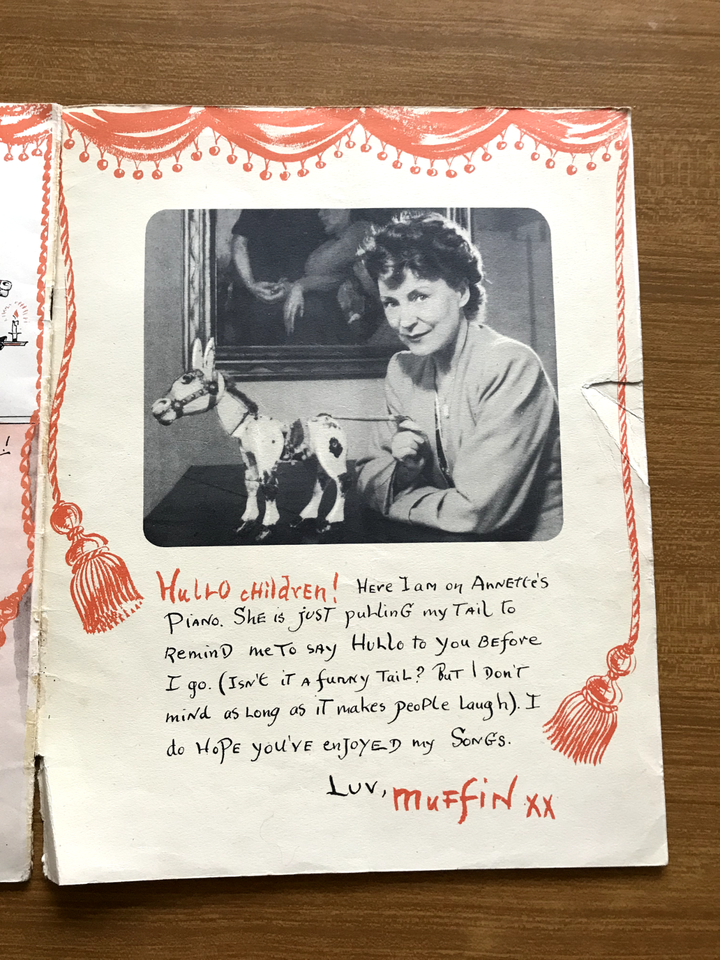 Hullo children! Here I am on Annette's
Piano. She is just pulling my Tail to
remind me to say Hullo to you before
I go. (Isn't it a funny Tail? But I don't
mind as long as it makes people laugh). I
do hope you've enjoyed my Songs.
Luv, muffin xx
!